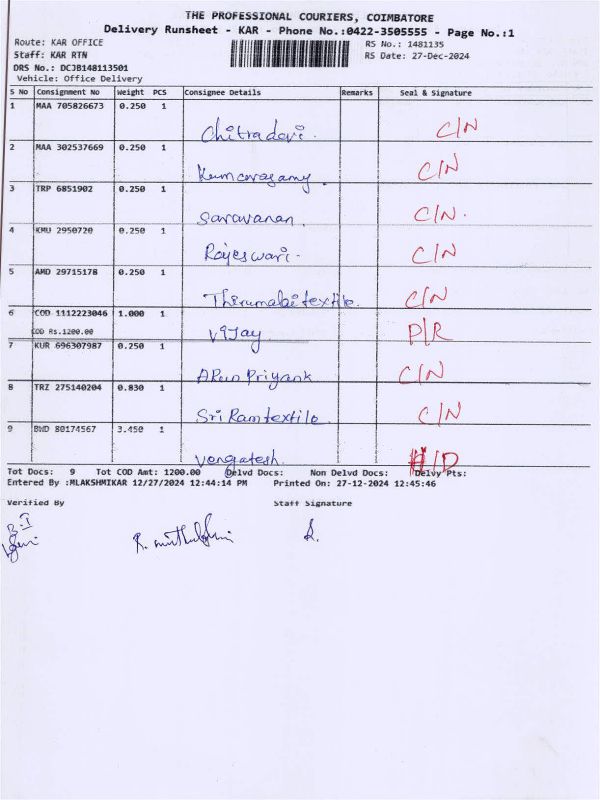 THE PROFESSIONAL COURIERS, COIMBATORE
Delivery Runsheet - KAR - Phone No.:0422-3505555 - Page No.:1
Route: KAR OFFICE RS No.: 1481135
Staff: KAR RTN RS Date: 27-Dec-2024
DRS No.: DCJB148113501
Vehicle: Office Delivery
S No Consignment No Weight PCS Consignee Details Remarks Seal & Signature
1 MAA 705826673 0.250 1
Chitradevi. C/N
2 MAA 302537669 0.250 1
Kumarasamy. C/N
3 TRP 6851902 0.250 1
Saravanan. C/N.
4 KMU 2950720 0.250 1
Rajeswari. C/N
5 AMD 29715178 0.250 1
Thirumalai textile. C/N
6 COD 1112223046 1.000 1
COD Rs.1200.00 Vijay P/R
7 KUR 696307987 0.250 1
Arun Priyank C/N
8 TRZ 275140204 0.830 1
Sri Ram textile. C/N
9 BWD 80174567 3.450 1
Vengatesh. /D
Tot Docs: 9 Tot COD Amt: 1200.00 Delvd Docs: Non Delvd Docs: Delvy Pts:
Entered By :MLAKSHMIKAR 12/27/2024 12:44:14 PM Printed On: 27-12-2024 12:45:46
Verified By Staff Signature